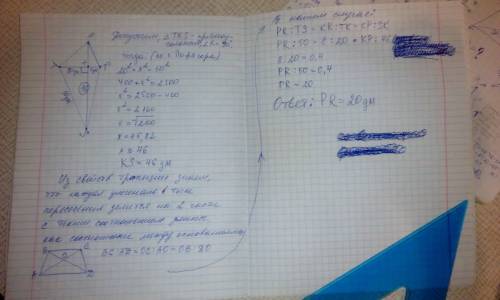 Допустим, △TKS - прямоу-
гольный, ∠K = 90°
тогда: (по т. Пифагора)
20² + x² = 50²
400 + x² = 2500
x² = 2500 - 400
x² = 2100
x = √2100
x = 45,82
x ≈ 46
KS ≈ 46 дм
Из свойств трапеции знаем,
что каждая диагональ в точке
пересечения делится на 2 части
с таким соотношением равно
как соотношение между основаниями
BC:AD = OC:AO = OB:DO
В нашем случае:
PR:TS = KR:TK = KP:SK
PR:50 = 8:20 = KP:46
8:20 = 0,4
PR:50 = 0,4
PR = 20
Ответ: PR = 20 дм